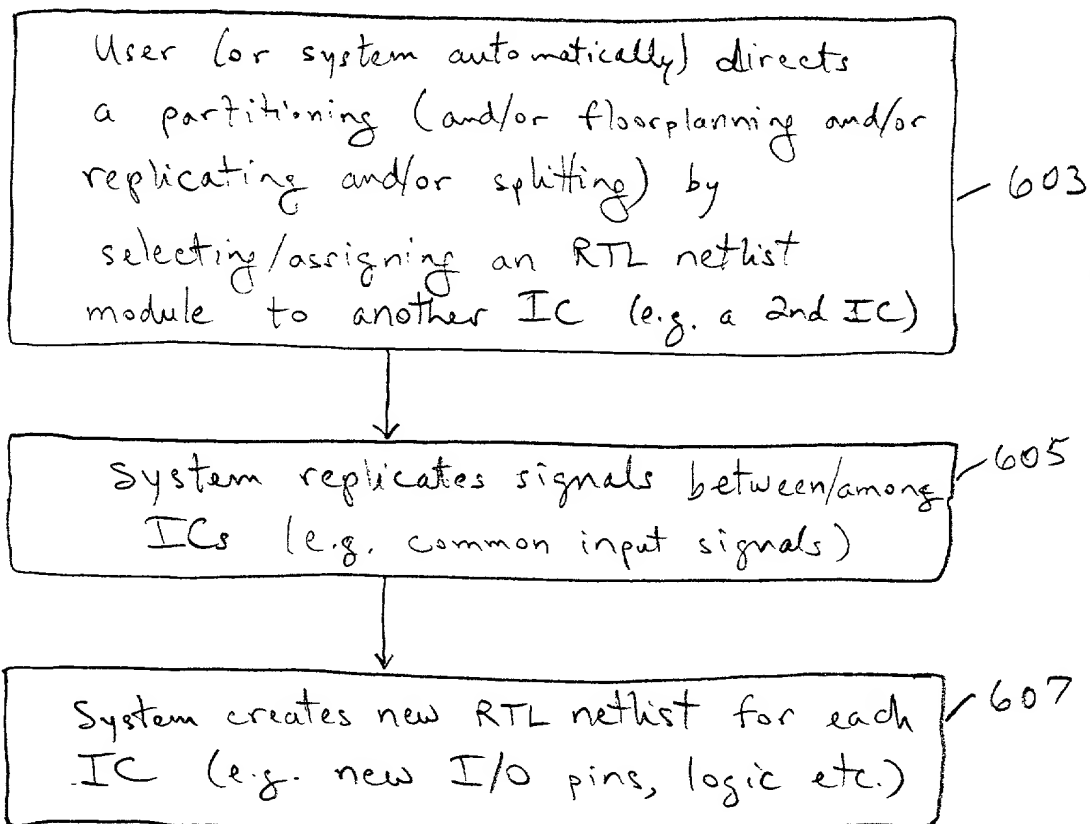 User (or system automatically) directs
a partitioning (and/or floorplanning and/or
replicating and/or splitting) by
selecting/assigning an RTL netlist
module to another IC (e.g. a 2nd IC)
603
System replicates signals between/among
ICs (e.g. common input signals)
605
System creates new RTL netlist for each
IC (e.g. new I/O pins, logic etc.)
607